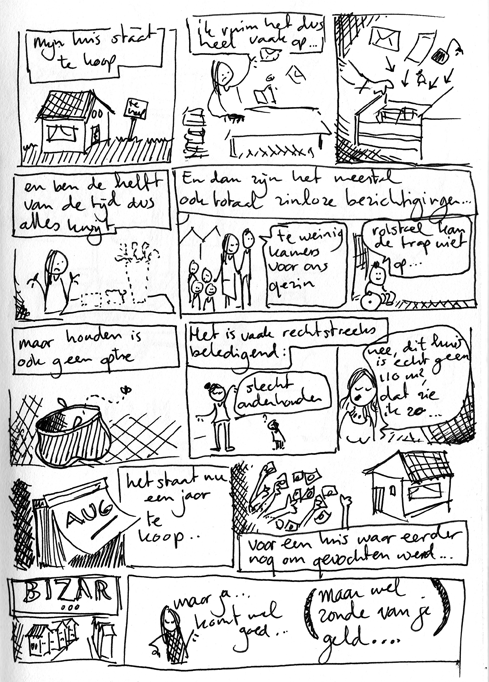 mijn huis staat
te koop
te
koop
ik ruim het dus
heel vaak op...
en ben de helft
van de tijd dus
alles kwijt
En dan zijn het meestal
ook totaal zinloze bezichtigingen...
te weinig
kamers
voor ons
gezin
rolstoel kan
de trap niet
op...
maar houden is
ook geen optie
Het is vaak rechtstreeks
beledigend:
slecht
onderhouden
nee, dit huis
is echt geen
110 m²,
dat zie
ik zo...
AUG
het staat nu
een jaar
te
koop..
voor een huis waar eerder
nog om gevochten werd...
BIZAR
...
maar ja...
komt wel
goed...
(Maar wel
zonde van je
geld....)